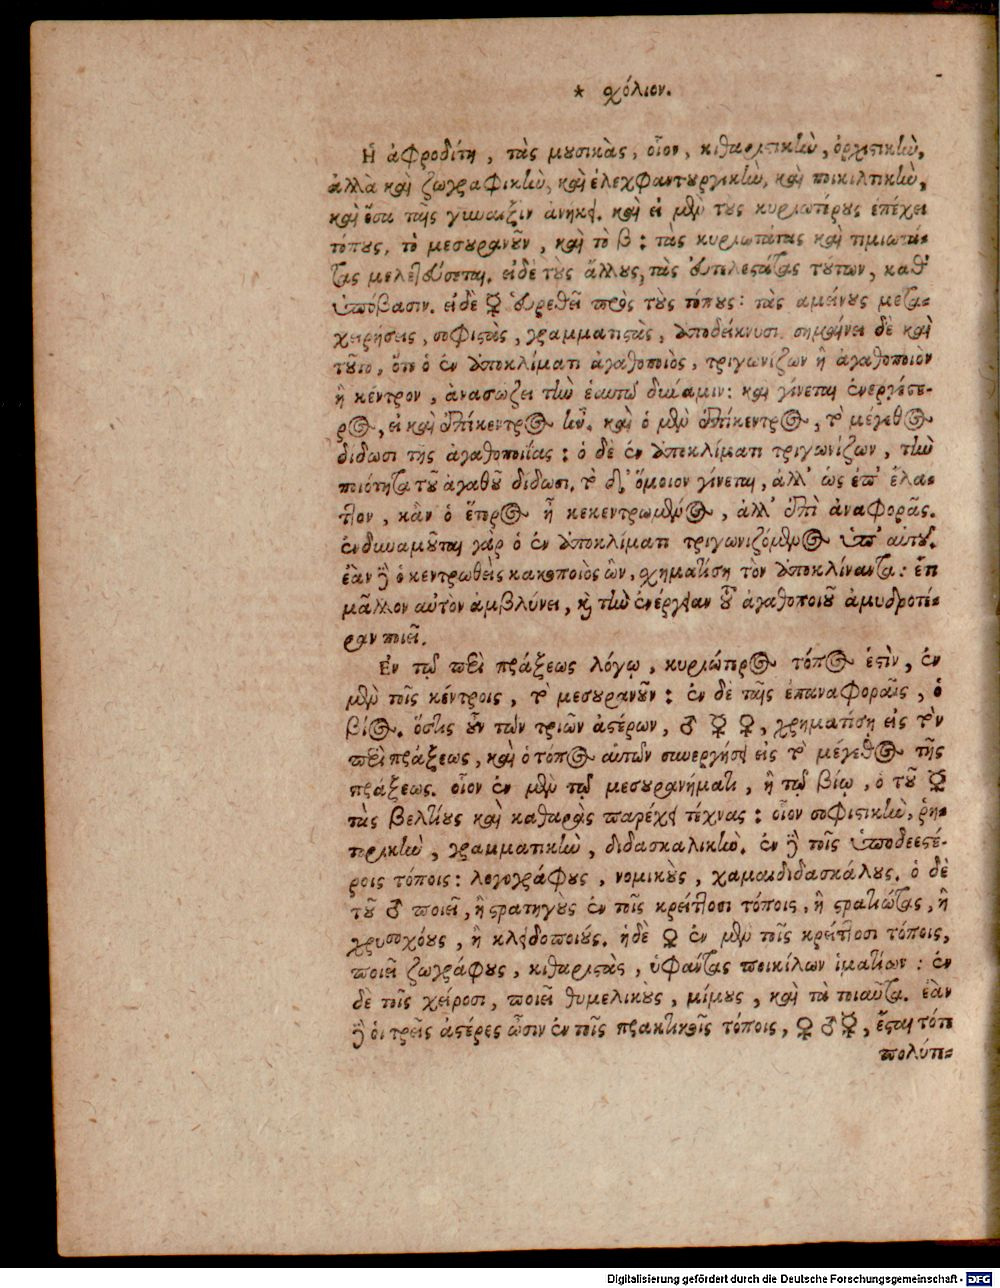 * χόλιον.
Ἡ ἀφροδίτη, τὰς μουσικὰς, οἷον, κιθαριστικὴν, ὀρχιστικὴν,
ἀλλὰ καὶ ζωγραφικὴν, καὶ ἐλεχφαντουργικὴν, καὶ ποικιλτικὴν,
καὶ ὅσα ταῖς γυναιξὶν ἀνήκει. καὶ εἰ μὲν τοὺς κυριωτέρους ἐπέχει
τόπους, τὸ μεσουρανοῦν, καὶ τὸ β: τὰς κυριωτάτας καὶ τιμιωτά-
τας μελετεύσεται. εἰδὲ τοὺς ἄλλους, τὰς εὐτελεστάτας τούτων, καθ'
ὑπόβασιν. εἰδὲ ☿ εὑρεθεῖ πρὸς τοὺς τόπους: τὰς ἀμείνους μετα-
χειρήσεις, σοφιστὰς, γραμματιστὰς, ἀποδείκνυσι. σημαίνει δὲ καὶ
τοῦτο, ὅτι ὁ ἐν ἀποκλίματι ἀγαθοποιὸς, τριγωνίζων ἢ ἀγαθοποιὸν
ἢ κέντρον, ἀνασώζει τὴν ἑαυτοῦ δύναμιν: καὶ γίνεται ἐνεργέστε-
ρος, εἰ καὶ ἐπίκεντρος ἦν. καὶ ὁ μὲν ἐπίκεντρος, τὸ μέγεθος
δίδωσι τῆς ἀγαθοποιΐας: ὁ δὲ ἐν ἀποκλίματι τριγωνίζων, τὴν
ποιότητα τοῦ ἀγαθοῦ δίδωσι. τὸ δ' ὅμοιον γίνεται, ἀλλ' ὡς ἐπ' ἔλα-
ττον, κἂν ὁ ἕτερος ἦ κεκεντρωμένος, ἀλλ' ἐπὶ ἀναφορᾶς.
ἐνδυναμοῦται γὰρ ὁ ἐν ἀποκλίματι τριγωνιζόμενος ὑπ' αὐτοῦ.
ἐὰν δὲ ὁ κεντρωθεὶς κακοποιὸς ὢν, σχηματίση τὸν ἀποκλίναντα: ἔτι
μᾶλλον αὐτὸν ἀμβλύνει, καὶ τὴν ἐνέργειαν τοῦ ἀγαθοποιοῦ ἀμυδροτέ-
ραν ποιεῖ.
Ἐν τῷ περὶ πράξεως λόγῳ, κυριώτερος τόπος ἐστὶν, ἐν
μὲν τοῖς κέντροις, τὸ μεσουρανοῦν: ἐν δὲ ταῖς ἐπαναφοραῖς, ὁ
βίος. ὅστις οὖν τῶν τριῶν ἀστέρων, ♂ ☿ ♀, χρηματίση εἰς τὸν
περὶ πράξεως, καὶ ὁ τόπος αὐτῶν συνεργήσει εἰς τὸ μέγεθος τῆς
πράξεως. οἷον ἐν μὲν τῷ μεσουρανήματι, ἢ τῷ βίῳ, ὁ τοῦ ☿
τὰς βελτίους καὶ καθαρὰς παρέχει τέχνας: οἷον σοφιστικὴν, ῥη-
τορικὴν, γραμματικὴν, διδασκαλικὴν. ἐν δὲ τοῖς ὑποδεεστέ-
ροις τόποις: λογογράφους, νομικοὺς, χαμαιδιδασκάλους. ὁ δὲ
τοῦ ♂ ποιεῖ, ἢ στρατηγοὺς ἐν τοῖς κρείττοσι τόποις, ἢ στρατιώτας, ἢ
χρυσοχόους, ἢ κλειδοποιούς. ἡδὲ ♀ ἐν μὲν τοῖς κρείττοσι τόποις,
ποιεῖ ζωγράφους, κιθαριστὰς, ὑφαίντας ποικίλων ἱματίων: ἐν
δὲ τοῖς χείροσι, ποιεῖ θυμελικοὺς, μίμους, καὶ τὰ τοιαῦτα. ἐὰν
δὲ οἱ τρεῖς ἀστέρες ὦσιν ἐν τοῖς πρακτικοῖς τόποις, ♀ ♂ ☿, ἔσται τότε
πολύπ-
Digitalisierung gefördert durch die Deutsche Forschungsgemeinschaft - DFG